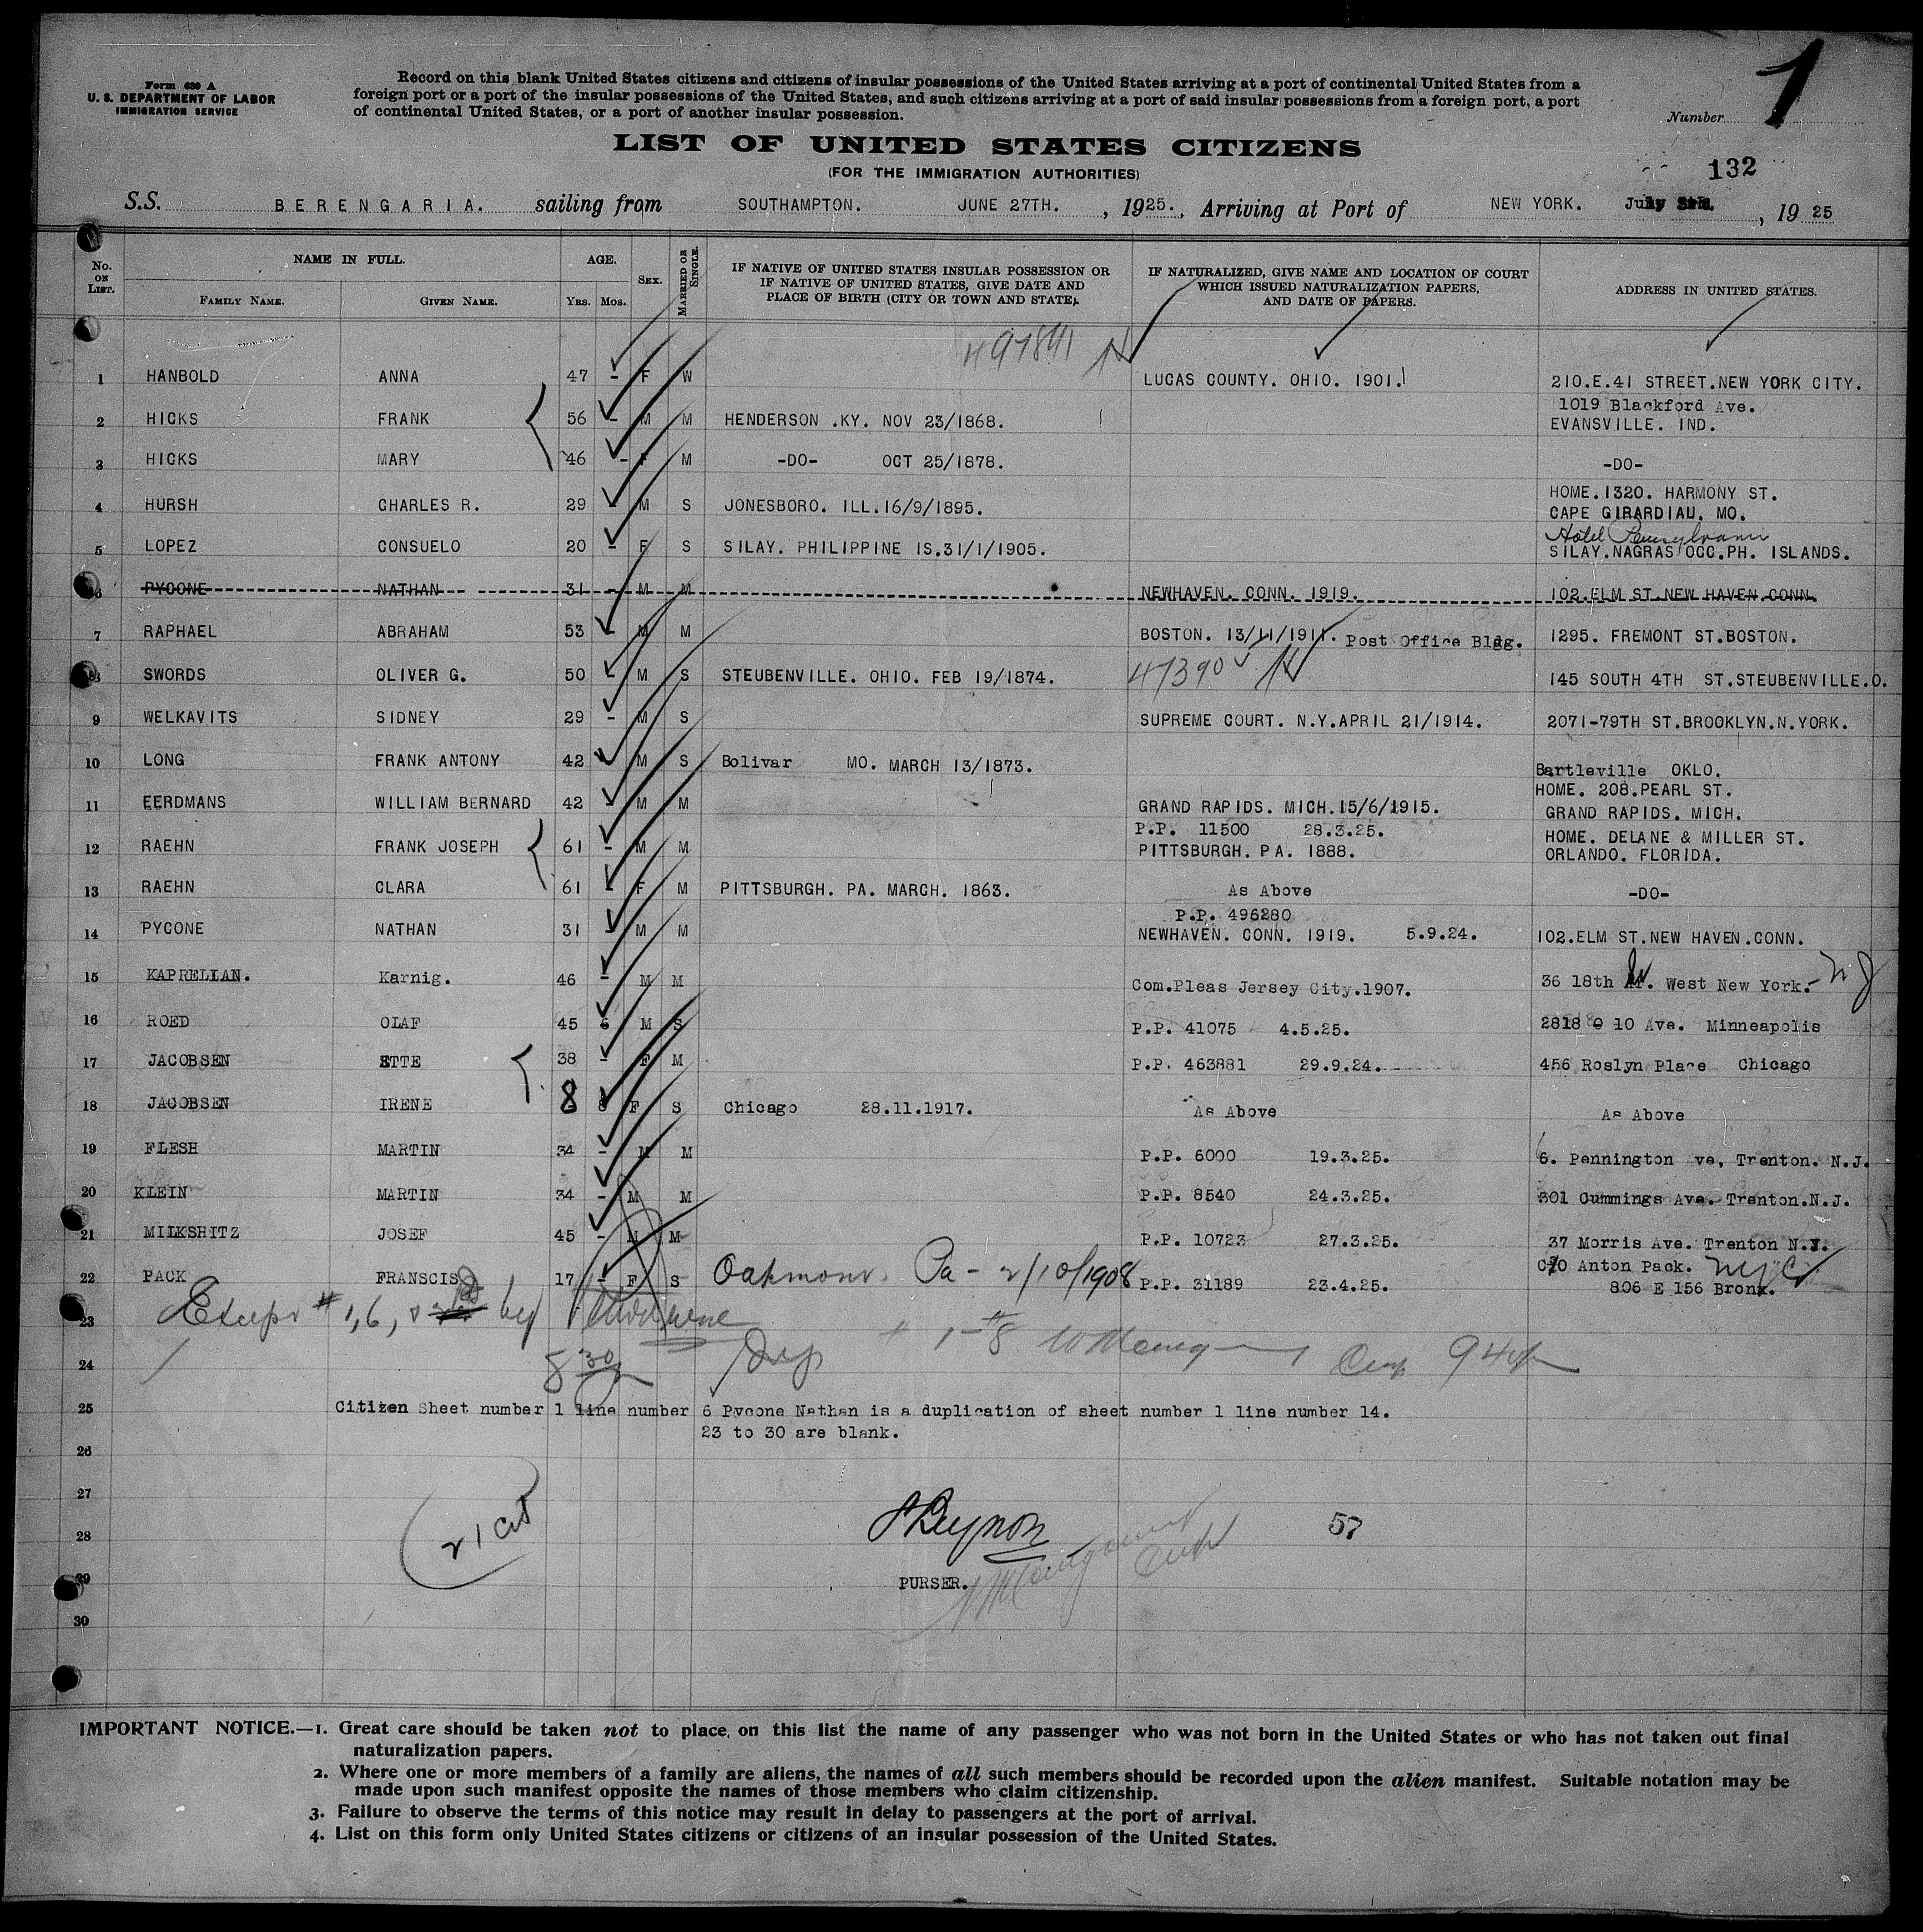 Form 630 A
U. S. DEPARTMENT OF LABOR
IMMIGRATION SERVICE
Record on this blank United States citizens and citizens of insular possessions of the United States arriving at a port of continental United States from a
foreign port or a port of the insular possessions of the United States, and such citizens arriving at a port of said insular possessions from a foreign port, a port
of continental United States, or a port of another insular possession.
Number 1
LIST OF UNITED STATES CITIZENS
(FOR THE IMMIGRATION AUTHORITIES)
132
S.S. BERENGARIA. sailing from SOUTHAMPTON. JUNE 27TH. , 1925. , Arriving at Port of NEW YORK. July , 19 25
No. ON LIST. NAME IN FULL. FAMILY NAME. GIVEN NAME. AGE. YRS. MOS. SEX. MARRIED OR SINGLE. IF NATIVE OF UNITED STATES INSULAR POSSESSION OR IF NATIVE OF UNITED STATES, GIVE DATE AND PLACE OF BIRTH (CITY OR TOWN AND STATE). IF NATURALIZED, GIVE NAME AND LOCATION OF COURT WHICH ISSUED NATURALIZATION PAPERS, AND DATE OF PAPERS. ADDRESS IN UNITED STATES.
497841
1 HANBOLD ANNA 47 - F W LUCAS COUNTY. OHIO. 1901. 210.E.41 STREET.NEW YORK CITY.
1019 Blackford Ave.
2 HICKS FRANK 56 - M M HENDERSON .KY. NOV 23/1868. EVANSVILLE. IND.
3 HICKS MARY 46 - F M -DO- OCT 25/1878. -DO-
HOME.1320. HARMONY ST.
4 HURSH CHARLES R. 29 - M S JONESBORO. ILL.16/9/1895. CAPE GIRARDIAU. MO.
Hotel Pennsylvania
5 LOPEZ CONSUELO 20 - F S SILAY. PHILIPPINE IS.31/1/1905. SILAY.NAGRAS OCC.PH. ISLANDS.
6 PYCONE NATHAN 31 - M M NEWHAVEN. CONN. 1919. 102.ELM ST.NEW HAVEN.CONN.
7 RAPHAEL ABRAHAM 53 - M M BOSTON. 13/11/1911. Post Office Bldg. 1295. FREMONT ST.BOSTON.
8 SWORDS OLIVER G. 50 - M S STEUBENVILLE. OHIO. FEB 19/1874. 47390 145 SOUTH 4TH ST.STEUBENVILLE.O.
9 WELKAVITS SIDNEY 29 - M S SUPREME COURT. N.Y.APRIL 21/1914. 2071-79TH ST.BROOKLYN.N.YORK.
10 LONG FRANK ANTONY 42 - M S Bolivar MO. MARCH 13/1873. Bartleville OKLO.
HOME. 208.PEARL ST.
11 EERDMANS WILLIAM BERNARD 42 - M M GRAND RAPIDS. MICH.15/6/1915. GRAND RAPIDS. MICH.
P.P. 11500 28.3.25.
12 RAEHN FRANK JOSEPH 61 - M M PITTSBURGH. PA. 1888. HOME. DELANE & MILLER ST.
ORLANDO. FLORIDA.
13 RAEHN CLARA 61 - F M PITTSBURGH. PA. MARCH. 1863. As Above -DO-
P.P. 496280
14 PYCONE NATHAN 31 - M M NEWHAVEN. CONN. 1919. 5.9.24. 102.ELM ST.NEW HAVEN.CONN.
15 KAPRELIAN. Karnig. 46 - M M Com.Pleas Jersey City.1907. 36 18th . West New York.- N J
16 ROED OLAF 45 6 M S P.P. 41075 4.5.25. 2818 10 Ave. Minneapolis
17 JACOBSEN ETTE 38 - F M P.P. 463881 29.9.24. 456 Roslyn Place Chicago
18 JACOBSEN IRENE 8 F S Chicago 28.11.1917. As Above As Above
19 FLESH MARTIN 34 - M M P.P. 6000 19.3.25. 6. Pennington ve, Trenton. N.J.
20 KLEIN MARTIN 34 - M M P.P. 8540 24.3.25. 301 Cummings Ave. Trenton.N.J.
21 MILKSHITZ JOSEF 45 - M M P.P. 10723 27.3.25. 37 Morris Ave. Trenton N.J.
22 PACK FRANSCIS 17 - F S Oakmont. Pa - 2/10/1908 P.P. 31189 23.4.25. C/O Anton Pack. NYC
806 E 156 Bronx.
23 Except # 1, 6, 8
24 8 30
25 Citizen Sheet number 1 line number 6 Pycone Nathan is a duplication of sheet number 1 line number 14.
26 23 to 30 are blank.
27
28 21 Cit 57
29 PURSER.
30
IMPORTANT NOTICE.—1. Great care should be taken not to place on this list the name of any passenger who was not born in the United States or who has not taken out final
naturalization papers.
2. Where one or more members of a family are aliens, the names of all such members should be recorded upon the alien manifest. Suitable notation may be
made upon such manifest opposite the names of those members who claim citizenship.
3. Failure to observe the terms of this notice may result in delay to passengers at the port of arrival.
4. List on this form only United States citizens or citizens of an insular possession of the United States.